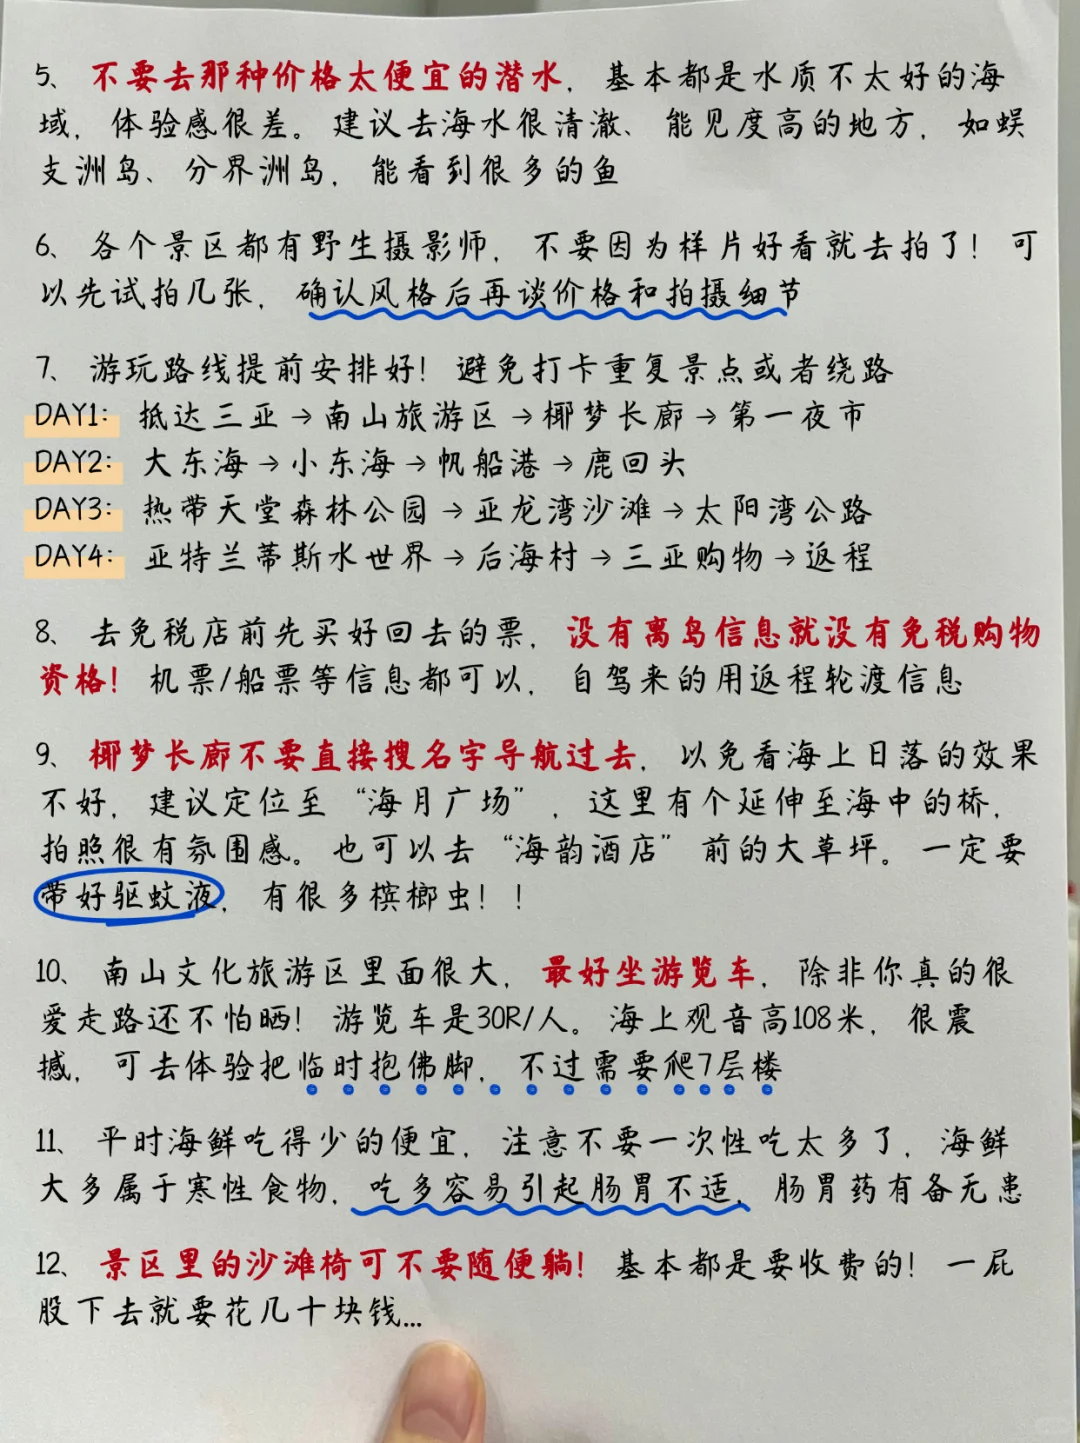 5、不要去那种价格太便宜的潜水，基本都是水质不太好的海
域，体验感很差。建议去海水很清澈、能见度高的地方，如蜈
支洲岛、分界洲岛，能看到很多的鱼
6、各个景区都有野生摄影师，不要因为样片好看就去拍了！可
以先试拍几张，确认风格后再谈价格和拍摄细节
7、游玩路线提前安排好！避免打卡重复景点或者绕路
DAY1：抵达三亚→南山旅游区→椰梦长廊→第一夜市
DAY2：大东海→小东海→帆船港→鹿回头
DAY3：热带天堂森林公园→亚龙湾沙滩→太阳湾公路
DAY4：亚特兰蒂斯水世界→后海村→三亚购物→返程
8、去免税店前先买好回去的票，没有离岛信息就没有免税购物
资格！机票/船票等信息都可以，自驾来的用返程轮渡信息
9、椰梦长廊不要直接搜名字导航过去，以免看海上日落的效果
不好，建议定位至“海月广场”，这里有个延伸至海中的桥，
拍照很有氛围感。也可以去“海韵酒店”前的大草坪。一定要
带好驱蚊液，有很多槟榔虫！！
10、南山文化旅游区里面很大，最好坐游览车，除非你真的很
爱走路还不怕晒！游览车是30R/人。海上观音高108米，很震
撼，可去体验把临时抱佛脚，不过需要爬7层楼
11、平时海鲜吃得少的便宜，注意不要一次性吃太多了，海鲜
大多属于寒性食物，吃多容易引起肠胃不适，肠胃药有备无患
12、景区里的沙滩椅可不要随便躺！基本都是要收费的！一屁
股下去就要花几十块钱...